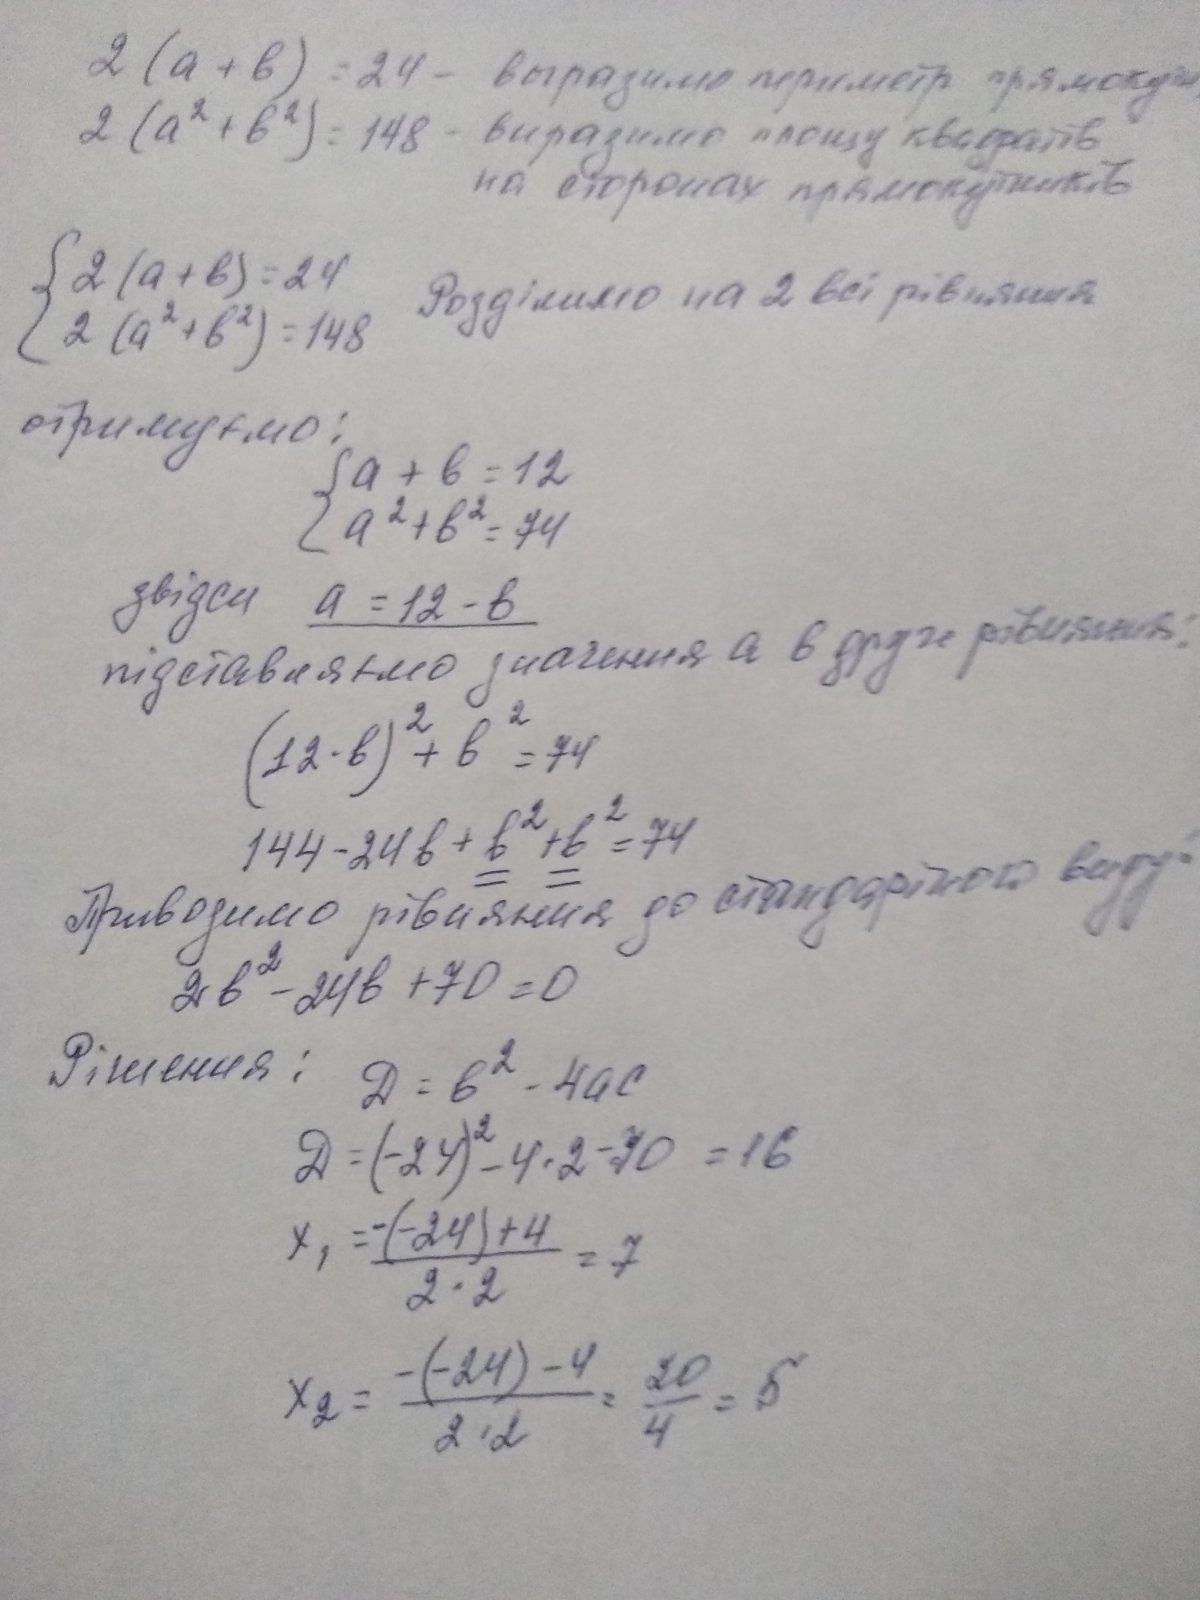 2 (a + b) = 24 - выразимо периметр
2 (a² + b²) = 148 - виразимо площу квадратів
на сторонах прямокутників
{ 2 (a + b) = 24
2 (a² + b²) = 148 Розділимо на 2 всі рівняння
отримуємо:
{ a + b = 12
a² + b² = 74
звідси a = 12 - b
підставляємо значення a в друге рівняння:
(12 - b)² + b² = 74
144 - 24b + b² + b² = 74
Приводимо рівняння до стандартного виду:
2b² - 24b + 70 = 0
Рішення: D = b² - 4ac
D = (-24)² - 4·2·70 = 16
x₁ = (-(-24) + 4) / (2·2) = 7
x₂ = (-(-24) - 4) / (2·2) = 20/4 = 5